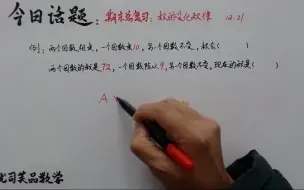 今日话题:期末总复习:积的变化规律 12.21
例1:两个因数相乘,一个因数乘10,另一个因数不变,积会( )
两个因数的积是72,一个因数除以9,另一个因数不变,现在的积是( )
A
优司芙品数学